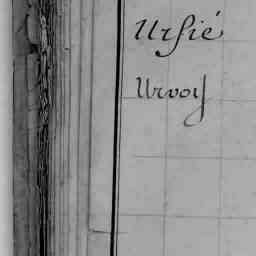 Ursié
Urvoy